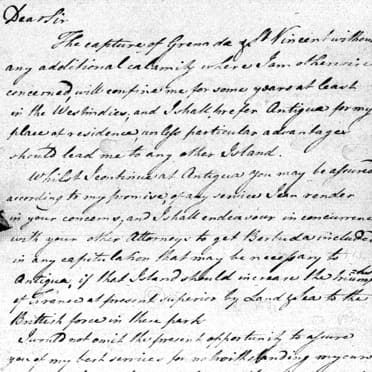 Dear Sir
The capture of Grenada & St Vincent without
any additional calamity where I am otherwise
concerned, will confine me for some years at least
in the Westindies, and I shall prefer Antigua for my
place of residence, unless particular advantages
should lead me to any other Island.
Whilst I continue at Antigua you may be assured
according to my promise, of any service I can render
in your concerns, and I shall endeavour in concurrence
with your other Attorneys to get Berbuda included
in any capitulation that may be necessary to
Antigua, if that Island should increase the triumphs
of France at present superior by Land & Sea to the
British force in these parts
I would not omit the present opportunity to assure
you of my best services for notwithstanding my own